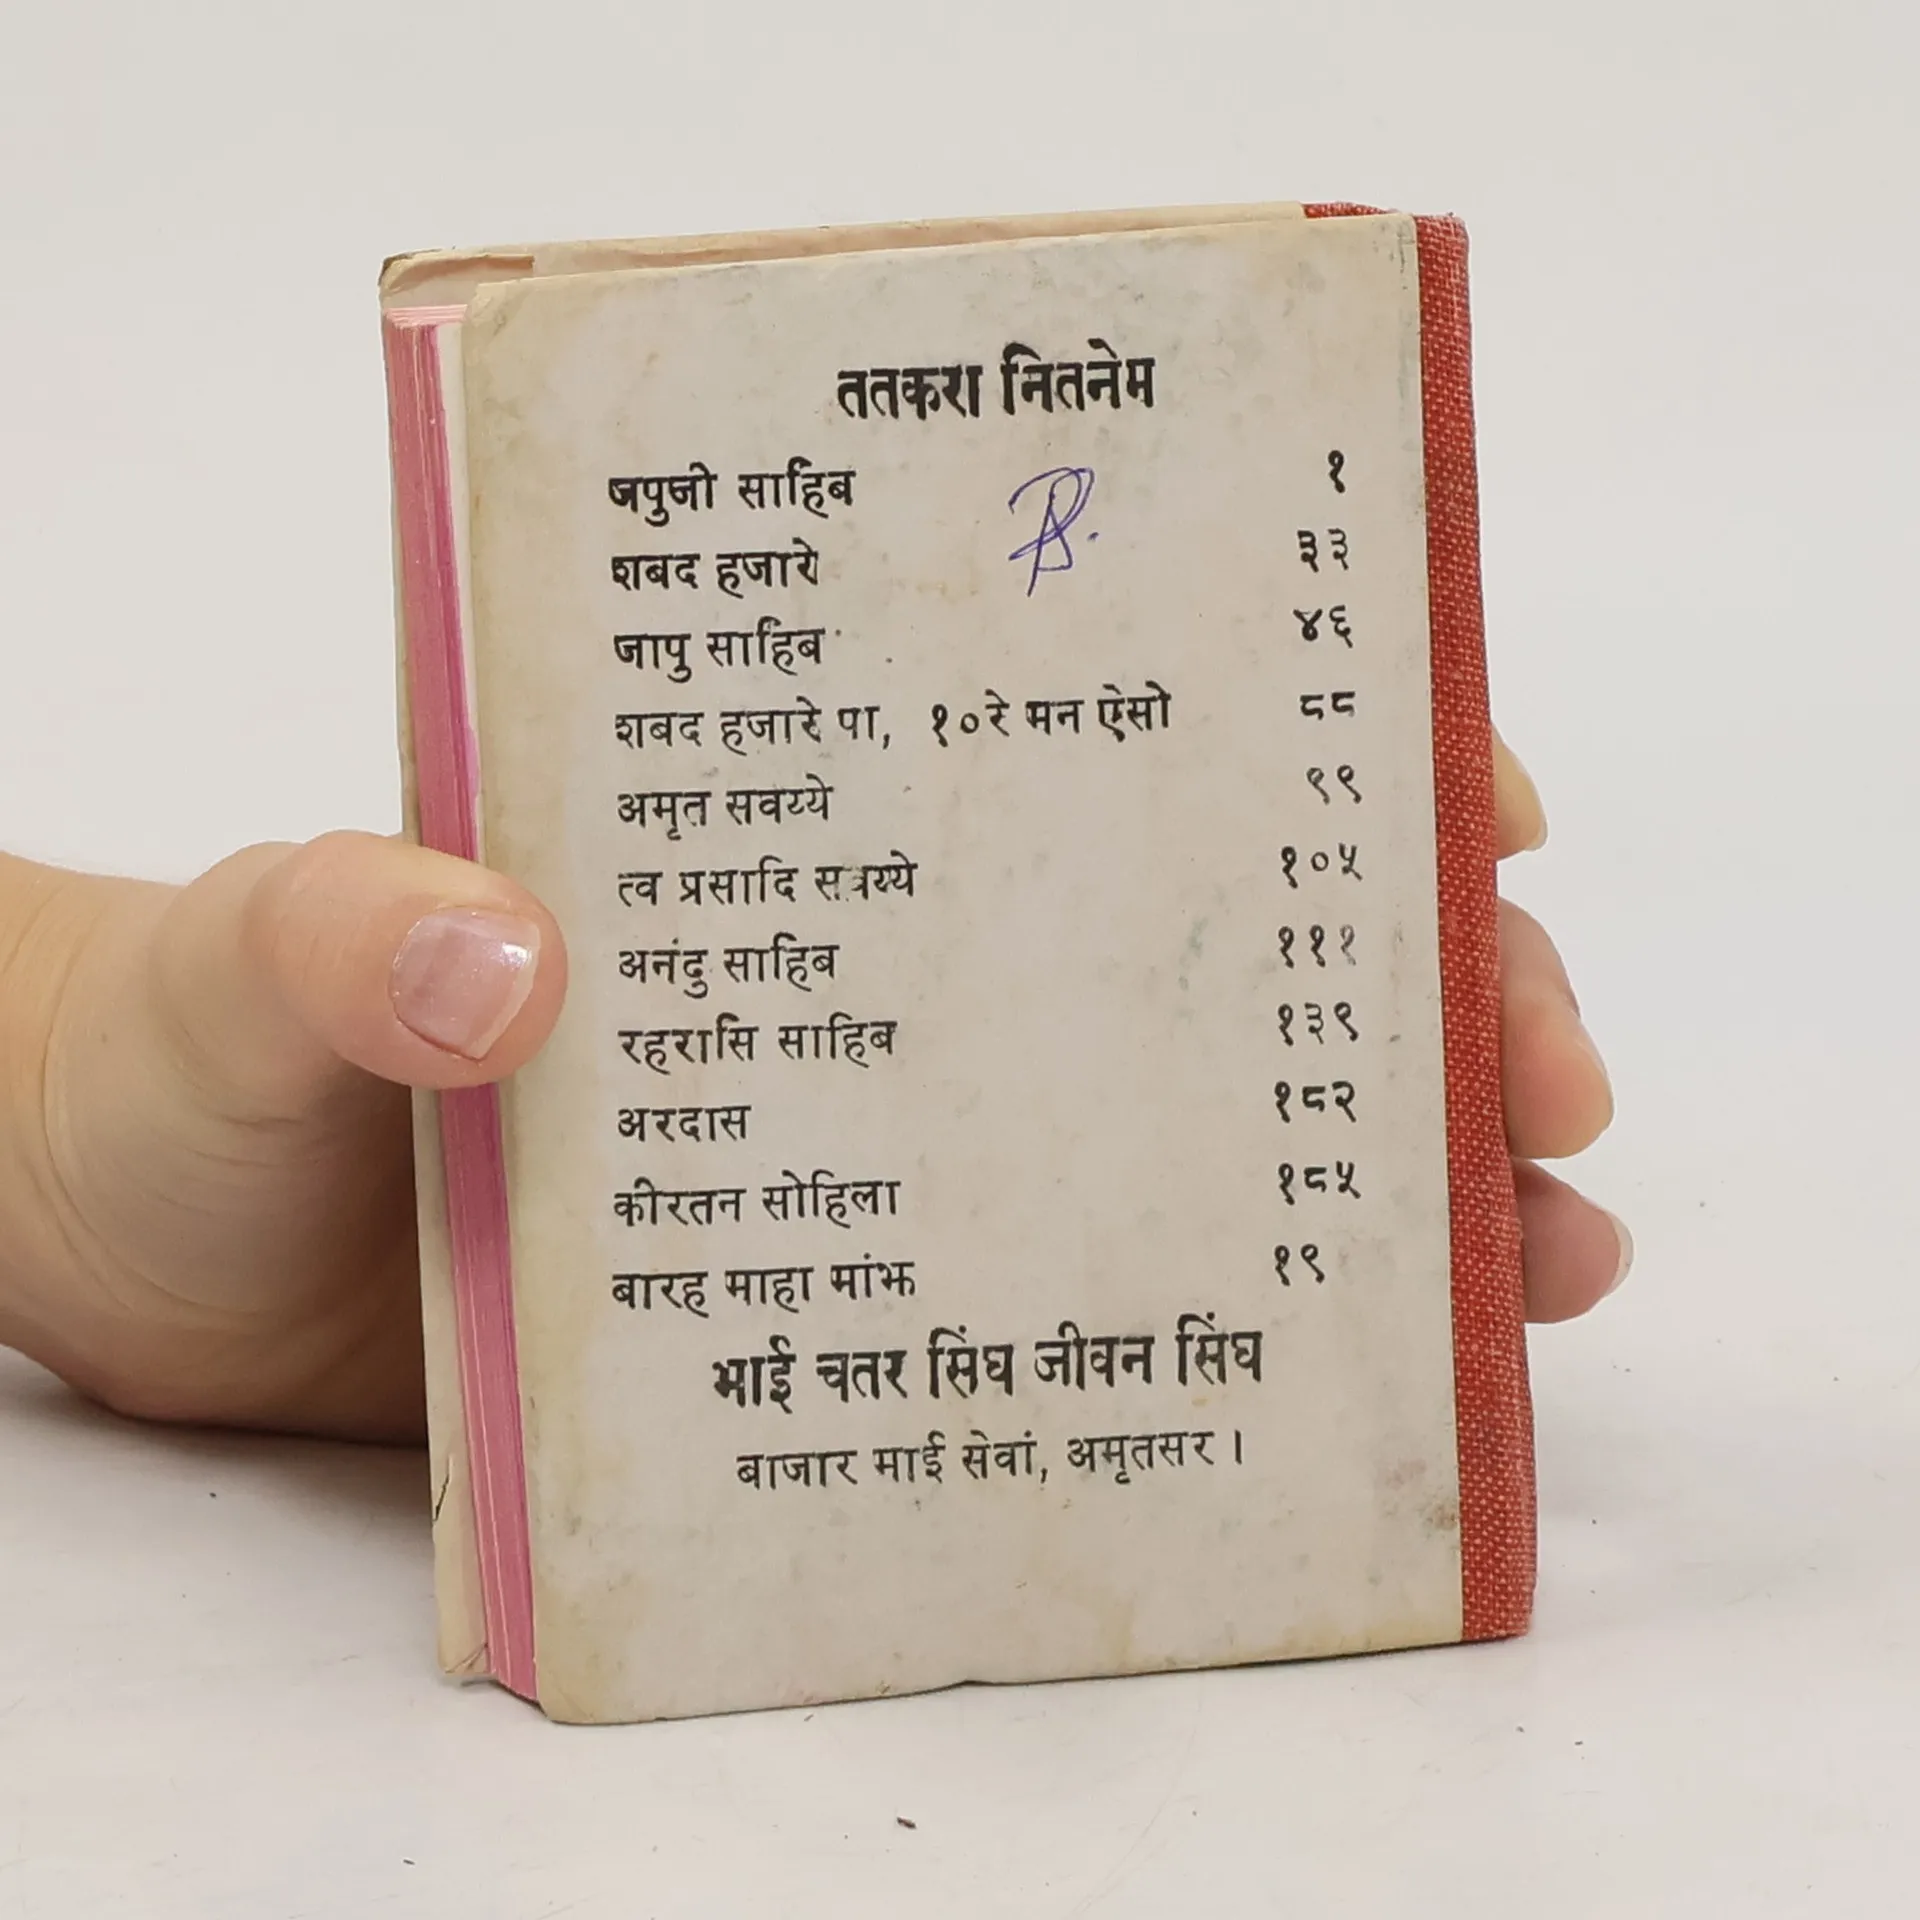 ततकरा नितनेम
जपुजी साहिब १
शबद हजारे ३३
जापु साहिब ४६
शबद हजारे पा, १०रे मन ऐसो ८८
अमृत सवय्ये ९९
त्व प्रसादि सवय्ये १०५
अनंदु साहिब १११
रहरासि साहिब १३९
अरदास १८२
कीरतन सोहिला १८५
बारह माहा मांझ १९
भाई चतर सिंघ जीवन सिंघ
बाजार माई सेवां, अमृतसर ।